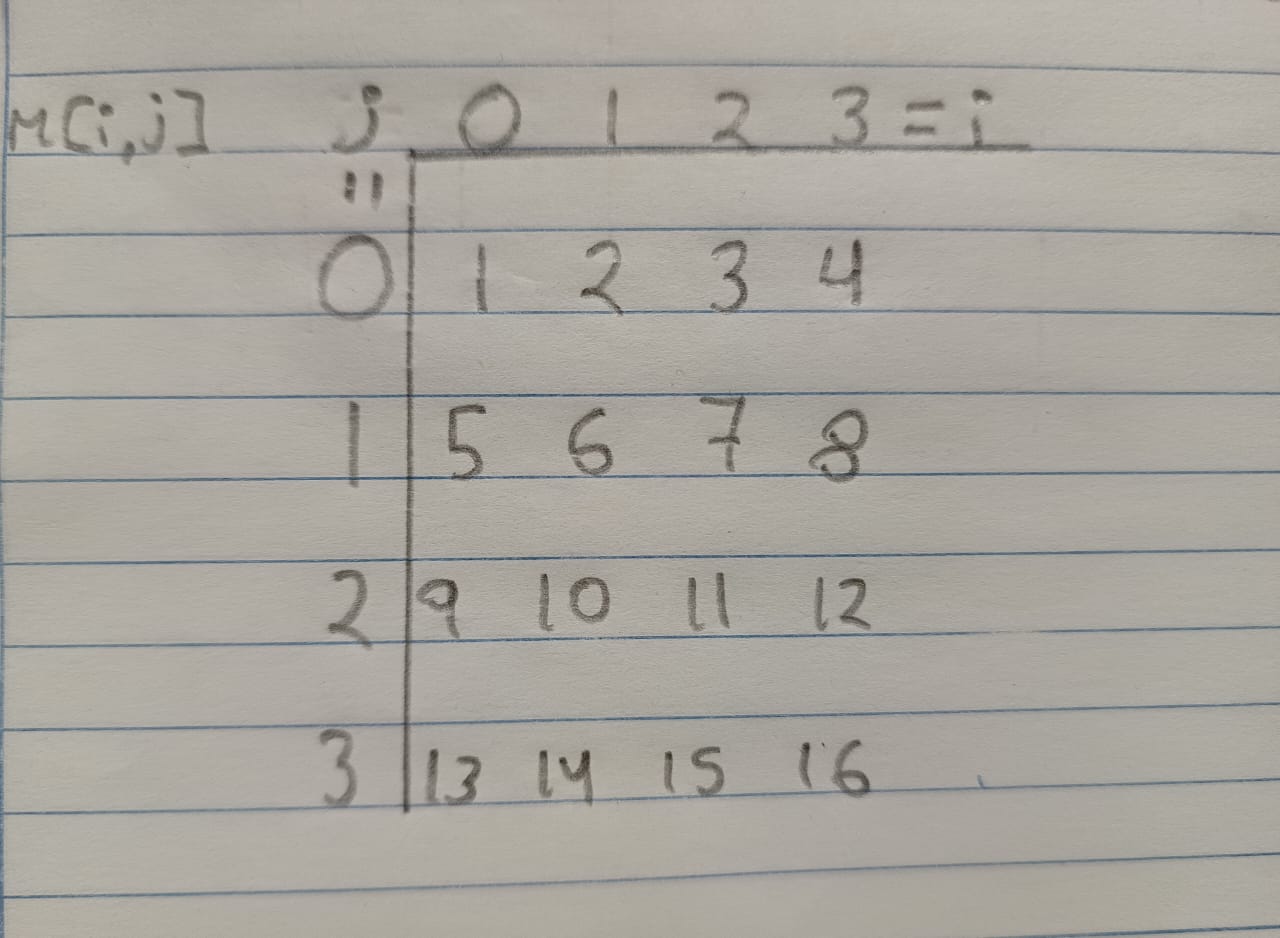 M[i,j] j 0 1 2 3 = i
"
0 1 2 3 4
1 5 6 7 8
2 9 10 11 12
3 13 14 15 16